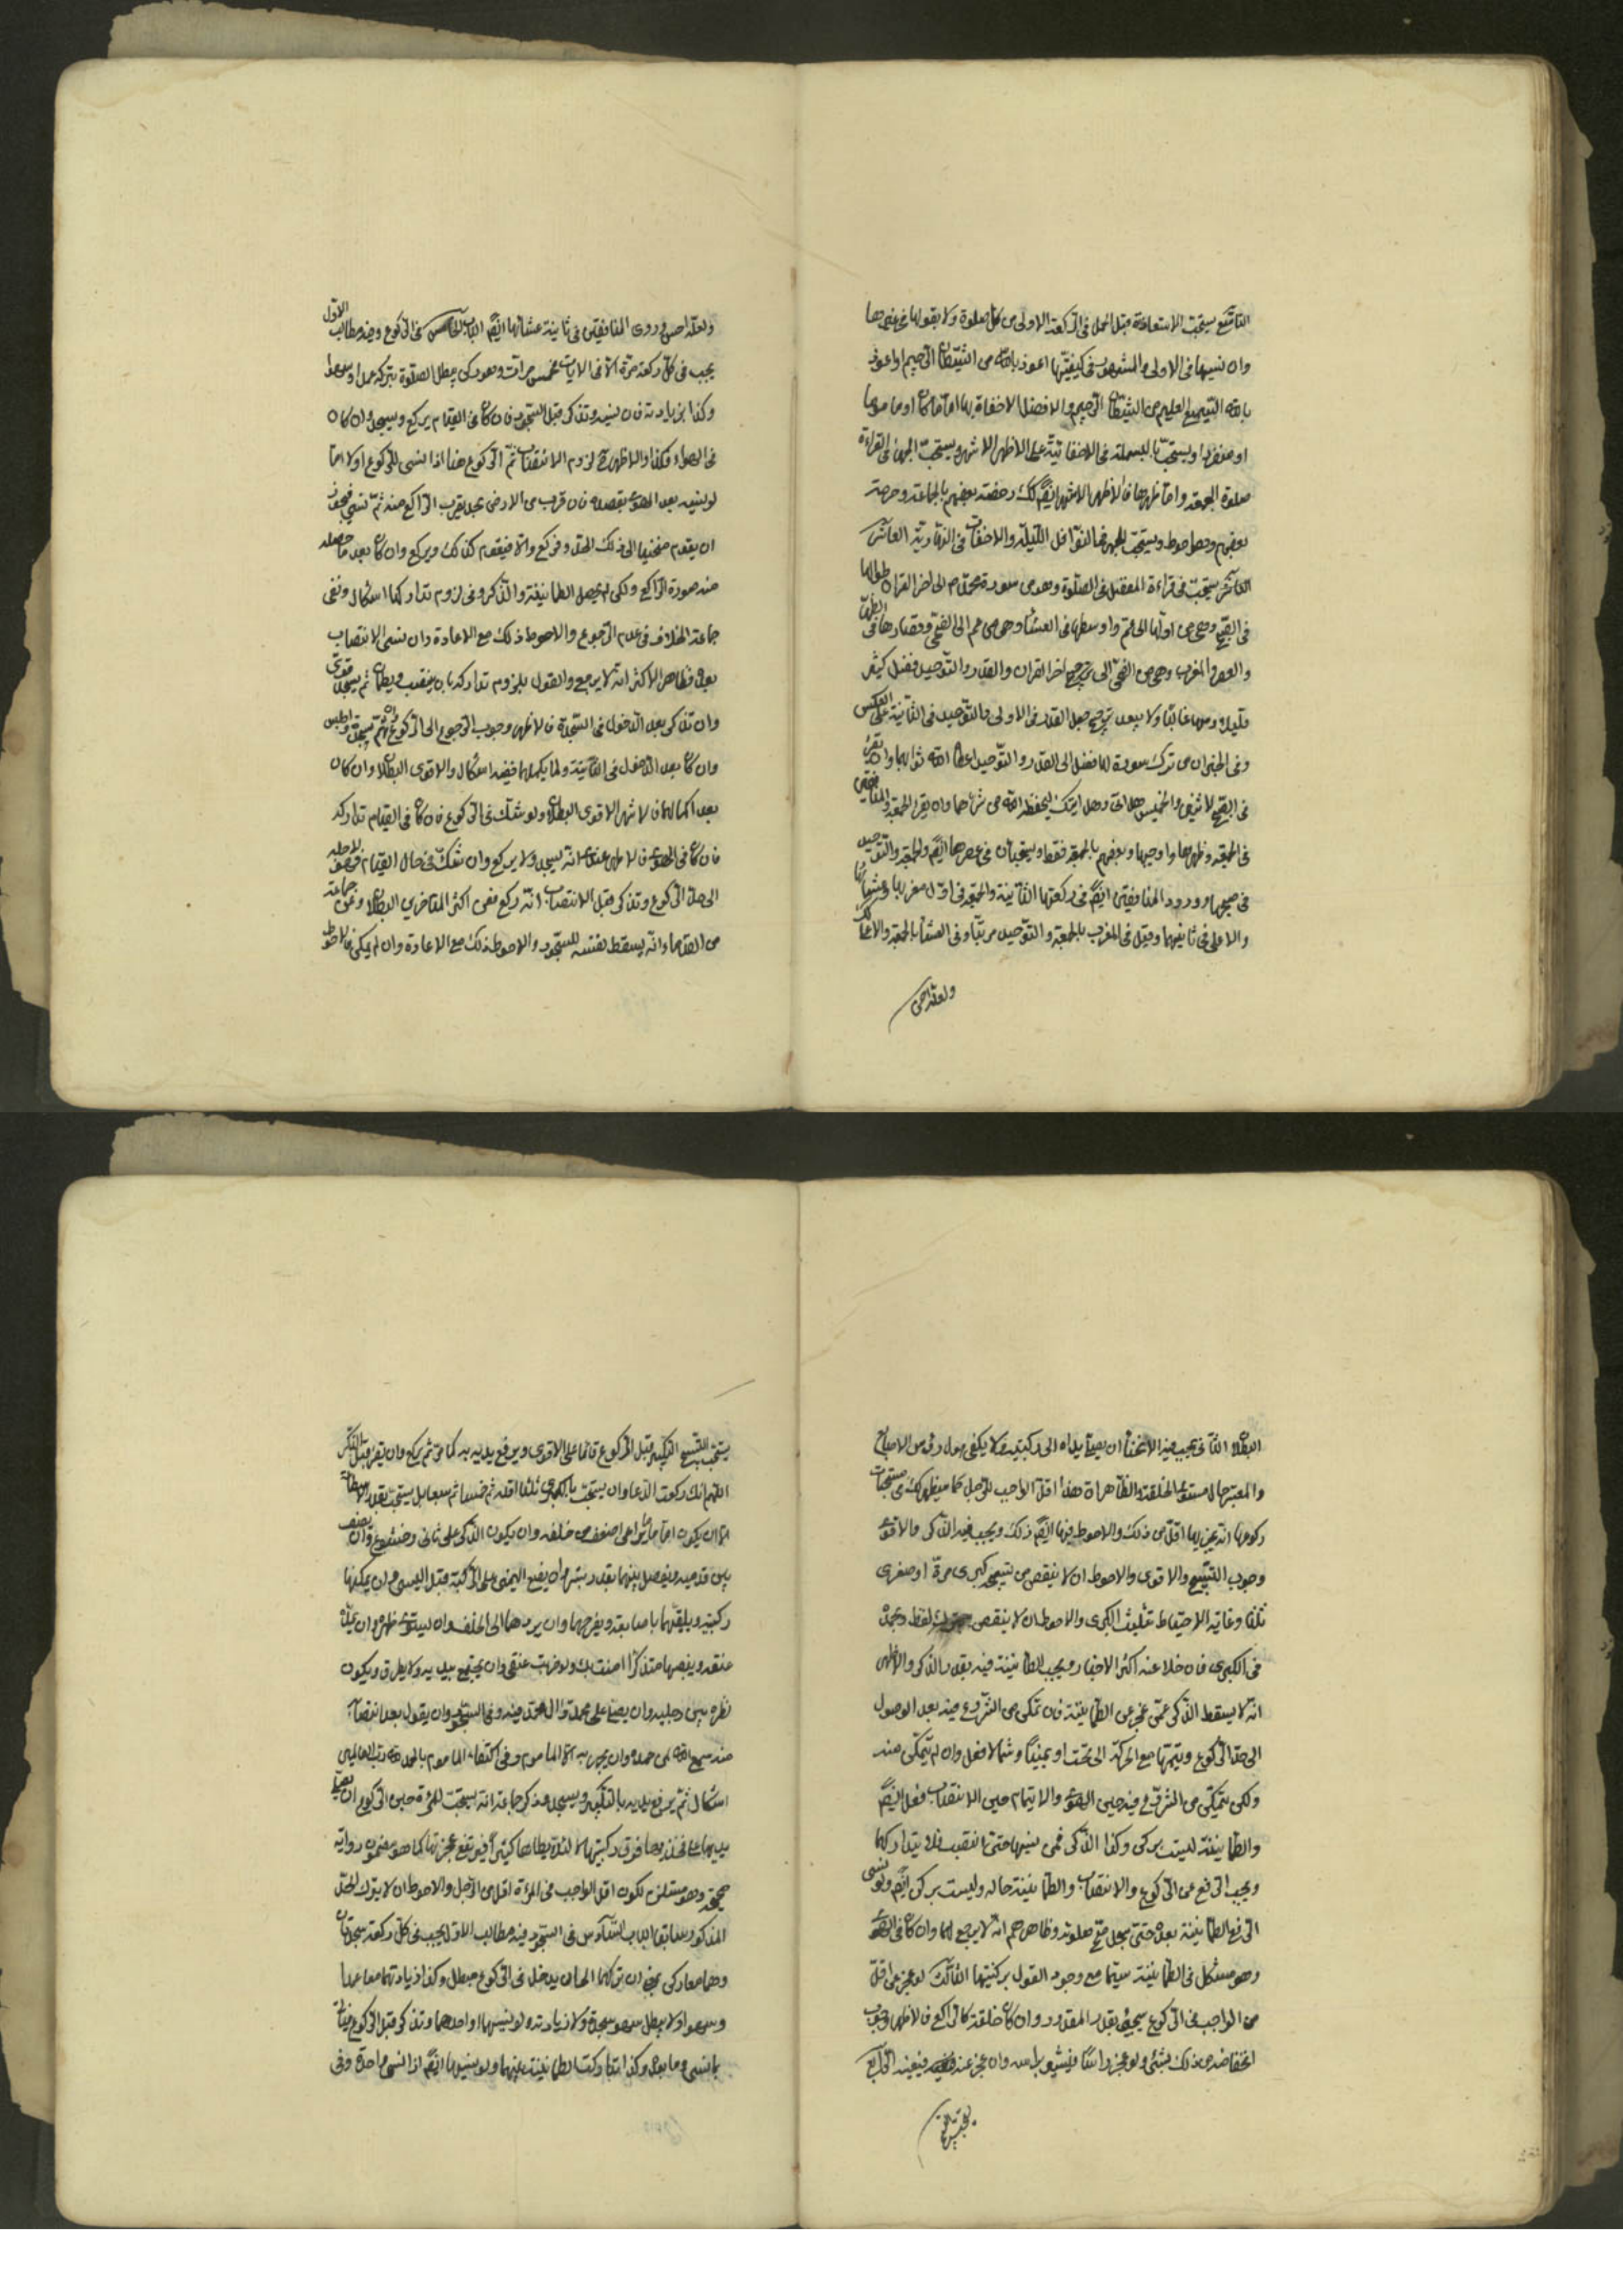 التاسع يستحب الاستعاذة قبل الحمد فی الركعة الاولى من كل صلوة ولا يقولها فی غيرها
وان نسيها فی الاولى والمشهور فی كيفيتها اعوذ بالله من الشيطان الرجيم او اعوذ
بالله السميع العليم من الشيطان الرجيم والافضل الاخفاة بها اماما كان او ماموما
او منفردا ويستحب بالبسملة فی الاخفاتية على الاظهر الاشهر ويستحب الجهر فی القراءة
صلوة الجمعة واما ظهرها فالاظهر الاشهر ايضا كك وخصه بعضهم بالجماعة وحرمه
بعضهم وهو احوط ويستحب الجهر فی النوافل الليلية والاخفات فی النهارية العاشر
العاشر يستحب قراءة المفصل فی الصلوة وهو من سورة محمد ص الى اخر القران طوالها
فی الصبح وهی من اولها الى عم واوسطها فی العشا وهی من عم الى الضحى وقصارها فی الظهر
والعصر والمغرب وهی من الضحى الى اخر القران والقدر والتوحيد ففضل كثير
ولا يبعد ترجيح جعل القدر فی الاولى والتوحيد فی الثانية على العكس
وفی الخبر ان من ترك سورة لها فضل الى القدر والتوحيد اعطاه الله ثوابهما وان يقرء
فی الصبح الاثنين والخميس هل اتى وهل اتيك ليحفظه الله من شرهما وان يقرء الجمعة والمنافقين
فی الجمعة وظهرها واوجبها بعضهم بالجمعة فقط ويستحبان فی عصرها ايضا والجمعة والتوحيد
فی صبحها وورد المنافقين ايضا فی ركعتها الثانية والجمعة فی اول مغربها وعشائها
والاعلى فی ثانيهما وقيل فی المغرب بالجمعة والتوحيد مرتبا وفی العشا بالجمعة والاعلى كك
ولعله احسن
ولعله احسن وروی المنافقين فی ثانية عشائها ايضا الباب الخامس فی الركوع وفيه مطالب الاول
يجب فی كل ركعة مرة الا فی الايات فخمس مرات وهو ركن يبطل الصلوة بتركه عمدا وسهوا
وكذا بزيادته فان نسيه وتذكر قبل السجود فان كان فی القيام يركع ويسجد وان كان
فی الهواء فكذا والاظهر لزوم الانتصاب ثم الركوع هذا اذا نسی الركوع اولا اما
لو نسيه بعد الهوی بقصده فان قرب من الارض بحد يقرب الراكع منه ثم نسی فيجوز
ان يقوم منحنيا الى ذلك الحد وفركع والا فيقوم كذلك ويركع وان كان بعد ما حصله
منه صورة الراكع ولكن لم يحصل الطمانينة والذكر وفی لزوم تداركها اشكال ونفی
جماعة الخلاف فی عدم الرجوع والاحوط ذلك مع الاعادة وان نسی الانتصاب
بعده فظاهر الاكثر انه لا يرجع والقول بلزوم تداركه بان ينتصب ويطمان ثم يسجد قوی
وان تذكر بعد الدخول فی السجدة فالاظهر وجوب الرجوع الى الركوع ثم يسجد
وان كان بعد الدخول فی الثانية ولما يكملهما ففيه اشكال والاقوی البطلان وان كان
بعد اكمالهما فالاشهر الاقوی البطلان ولو شك فی الركوع فان كان فی القيام تداركه
فان كان فی الهوی فالاظهر عندی انه يسجد ولا يركع وان شك فی حال القيام فهوى لاجله
الى حد الركوع وتذكر قبل الانتصاب انه ركع فعن اكثر المتاخرين البطلان وعن جماعة
من القدماء انه يسقط نفسه للسجود والاحوط ذلك مع الاعادة وان لم يمكن فالاحوط
البطلان الثانی يجب فيه الانحناء ان يصل يداه الى ركبتيه ولا يكفی وصول رؤس الاصابع
والمعتبر حال مستوی الخلقة والظاهر ان هذا اقل الواجب للرجل كما سيظهر لك من مستحبات
ركوعها انه يجزيها اقل من ذلك والاحوط فيها ايضا ذلك ويجب فيه الذكر والاقوی
وجوب التسبيح والاقوی والاحوط ان لا ينقص من تسبيحة كبری مرة او صغری
ثلثا وغاية الاحتياط تثليث الكبری والاحوط ان لا ينقص لفظ وبحمده
فی الكبری فان خلا عنه اكثر الاخبار ويجب الطمانينة فيه بقدر الذكر والاظهر
انه لا يسقط الذكر عمن عجز عن الطمانينة فان تمكن من الشروع فيه بعد الوصول
الى حد الركوع ويتمها مع الحركة الى تحت او يمينا وشمالا فعل وان لم يتمكن منه
ولكن يتمكن من الشروع فيه حين الهوی والاتمام حين الانتصاب فعل ايضا
والطمانينة ليست بركن وكذا الذكر فمن نسيها حتى انتصب فلا يتداركها
ويجب الرفع عن الركوع والانتصاب والطمانينة حاله وليست بركن ايضا ولو نسی
الرفع الطمانينة بعده حتى سجد صح صلوته وظاهرهم انه لا يرجع لهما وان كان فی الهوی
وهو مشكل فی الطمانينة سيما مع وجود القول بركنيتها الثالث لو عجز عن اقل
من الواجب فی الركوع سيجئ بقدر المقدور وان كان خلقته كالراكع فالاظهر وجوب
انخفاضه من ذلك بشئ ولو عجز راسا فيشير براسه وان عجز عنه فبعينه الرابع
يستحب
يستحب للتسبيح التكبير قبل الركوع قائما على الاقوی ويرفع يديه به كما مر ثم يركع وان يقرء قبل الذكر
اللهم لك ركعت الدعا وان يسبح بالكبری ثلثا اقله ثم خمسا ثم سبعا بل يستحب بقدر الاستطاعة
الا ان يكون اماما يراعی اضعف من خلفه وان يكون الذكر على ثانی وخشوع وان يصف
بين قدميه ويفصل بينهما بقدر شبر وان يضع اليمنى على الركبة قبل اليسری وان يمكنها
ركبتيه ويلقمهما باصابعه ويفرجهما وان يردهما الى الخلف وان يستوی ظهره وان يمد
عنقه وينصبها متذكرا امنت بك ولو ضربت عنقی وان يجنح بيديه ولا يطرق ويكون
نظره بين رجليه وان يصلی على محمد وال محمد فيه وفی السجود وان يقول بعد انتصابه
منه سمع الله لمن حمده وان يجهر به الا الماموم وفی اكتفاء الماموم بالحمد لله رب العالمين
اشكال ثم يرفع يديه بالتكبير ويسجد وذكر جماعة انه يستحب للمرءة حين الركوع ان تضع
يديها على فخذيها فوق ركبتيها لئلا يطاطا كثيرا فيرتفع عجزتها كما هو مضمون رواية
صحيحة وهو مستلزم لكون اقل الواجب فی المرءة اقل من الرجل والاحوط ان لا يترك الحد
المذكور سابقا الباب السادس فی السجود فيه مطالب الاول يجب فی كل ركعة سجدتان
وهما معا ركن بمعنى ان تركهما الى ان يدخل فی الركوع مبطل وكذا زيادتهما معا عمدا
وسهوا ولا يبطل سهو سجدة ولا زيادته ولو نسيهما او احدهما وتذكر قبل الركوع
بما نسی وما بعده وكذا اذا تركت الطمانينة بينهما ولو نسيها ايضا اذا نسی واحدة وفی